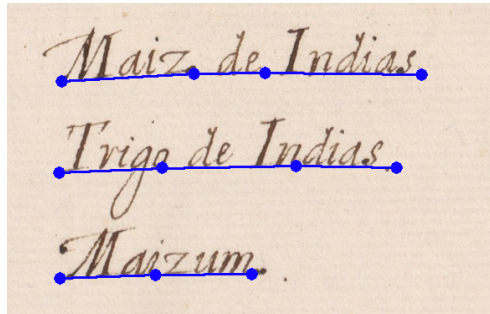 Maiz de Indias
Trigo de Indias
Maizum.